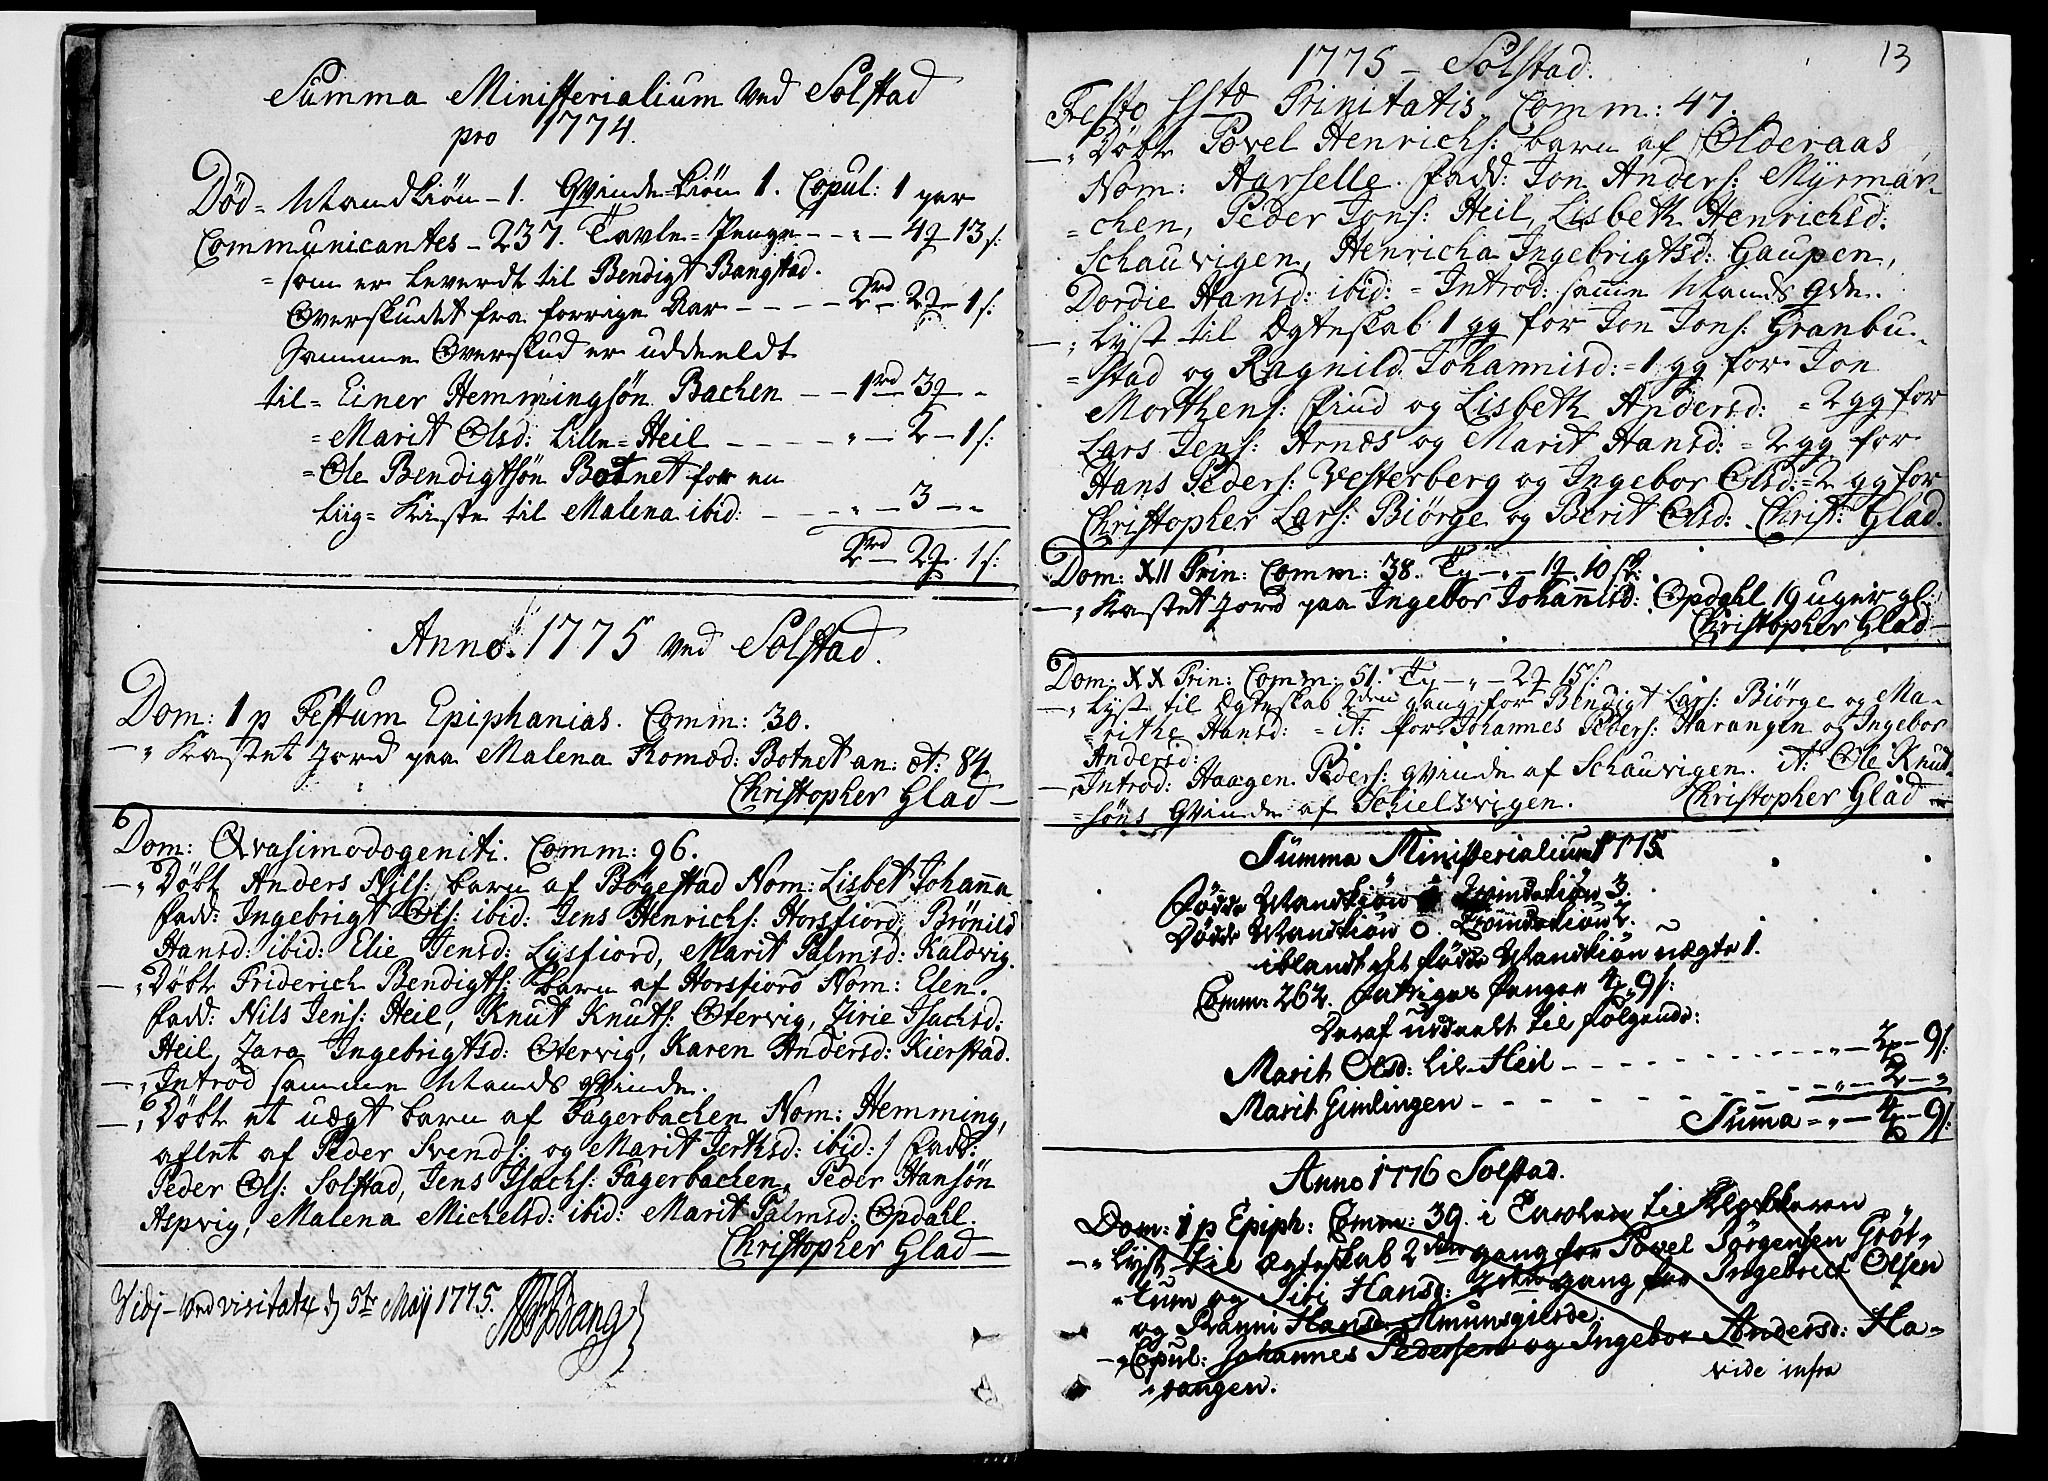 Summa Ministerialium ved Solstad
pro 1774.
Död = Mandkiön - 1. Qvinde-kiön 1. Copul: 1 par
Communicantes - 237. Tavle-Penge - - „ - 4 13 s:
=som er leverdt til Bendigt Bangstad.
Overskudet fra forrige Aar - - - - 2rd - 2 - 1 s:
Samme Overskud er uddeeldt
til = Einer Hemmingsön Bachen - - 1rd 3 -
= Marit Olsd: Lille-Heil - - - - „ - 2 - 1 s:
= Ole Bendigtsön Botnet for en
Liig-Kiste til Malena ibid: - - - „ - 3 - „
2rd - 2 1 s:
Anno 1775 ved Solstad.
Dom: 1 p Festum Epiphanias. Comm: 30.
-„ Kastet Jord paa Malena Romæd: Botnet an: æt: 84
Christopher Glad
Dom: Qvasimodogeniti. Comm: 96.
-„ Döbt Anders Nils: barn af Bögestad Nom: Lisbet Johanna
Fadd: Ingebrigt Ols: ibid: Jens Henrichs: Horsfiord, Brönild
Hansd: ibid: Elie Jensd: Lysfiord, Marit Palmsd: Kaldvig.
-„ Döbt Friderich Bendigts: barn af Horsfiord Nom: Elen.
Fadd: Nils Jens: Heil, Knut Knuts: Otervig, Zirie Isachsd:
Heil, Zara Ingebrigtsd: Otervig, Karen Andersd: Kierstad.
-„ Introd samme Mands qvinde.
-„ Döbt et uægt barn af Fagerbachen Nom: Hemming,
aflet af Peder Svends: og Marit Jerksd: ibid: / Fadd:
Peder Ols: Solstad, Jens Isachs: Fagerbachen, Peder Hansön
Aspvig, Malena Michelsd: ibid: Marit Palmsd: Opdahl.
Christopher Glad
Vidj - ved visitatz d 5te Maij 1775.
13
1775 - Solstad.
Festo SStæ Trinitatis. Comm: 47.
-„ Döbt Povel Henrichs: barn af Olderaas
Nom: Harselle. Fadd: Jon Anders: Myrmar-
=chen, Peder Jons: Heil, Lisbeth Henrichsd:
Schauvigen, Henricha Ingebrigtsd: Gaupen,
Dordie Hansd: ibid: = Introd: samme Mands qde.
-„ Lyst til Ægteskab 1 gg for Jon Jons: Granbu-
=stad og Ragnild Johannisd: = 1 gg for Jon
Morthens: Find og Lisbeth Andersd: = 2 gg for
Lars Jens: Arnæs og Marit Hansd: = 2 gg for
Hans Peders: Vesterberg og Ingebor Olsd: = 2 gg for
Christopher Lars: Biörge og Berit Olsd: Christ: Glad.
Dom: XII Trin: Comm: 38. - „ - 1 10
-„ Kastet Jord paa Ingebor Johannisd: Opdahl 19 uger gl:
Christopher Glad
Dom: XX Trin: Comm: 51. - „ - 2 15 s:
-„ Lyst til Ægteskab 2den gang for Bendigt Lars: Biörge og Ma-
=rithe Hansd: = it: for Johannes Peders: Harangen og Ingebor
Andersd:
-„ Introd: Haagen Peders: qvinde af Schauvigen. it: Ole Knud-
=söns Qvinde af Schielsvigen. Christopher Glad
Summa Ministerialium 1775
Födde Mandkiön Qvindekiön 3.
Dödde Mandkiön 0. Qvindekiön 2.
iblandt det födde Mandkiön uægte 1.
Comm: 262. Fattiges Penger 4 9 s:
Deraf uddeelt til fölgende:
Marit Olsd: Lil-Heil - - - - - „ - 2 - 9 s:
Marit Gimlingen - - - - - „ - 2 - „
Summa = „ - 4 - 9 s:
Anno 1776 Solstad.
Dom: 1 p Epiph: Comm: 39. i Tavlen til Klokkeren
-„ Lyst til Ægteskab 2den gang for Povel Jörgensen Gröt-
=tum og Sibi Hansd: gang for Ingebrict Olsen
og Ranni Hansd: Amunsgierde.
-„ Copul: Johannes Pedersen og Ingebor Andersd: Ha-
=rangen.
vide infra